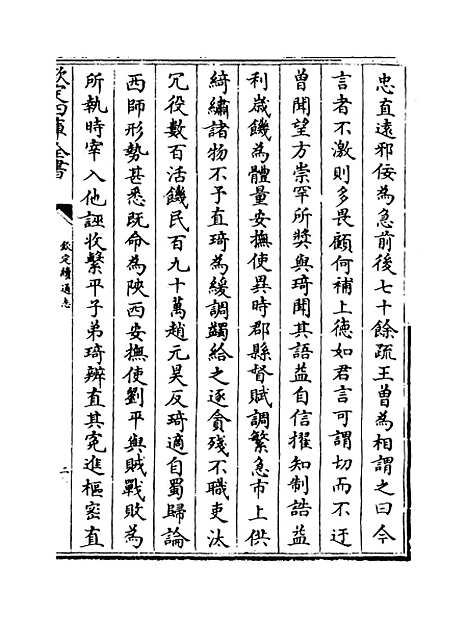 忠直遠邪佞為急前後七十餘疏王曽為相謂之曰今
言者不激則多畏顧何補上徳如君言可謂切而不迂
曽聞望方崇罕所奨與琦聞其語益自信擢知制誥益
利嵗饑為體量安撫使異時郡縣督賦調繁急市上供
綺繡諸物不予直琦為緩調蠲給之逐貪殘不職吏汰
冗役數百活饑民百九十萬趙元昊反琦適自蜀歸論
西師形勢甚悉既命為陜西安撫使劉平與賊戰敗為
所執時宰入他誣收繫平子弟琦辨直其寃進樞密直
欽定四庫全書
欽定續通志
二